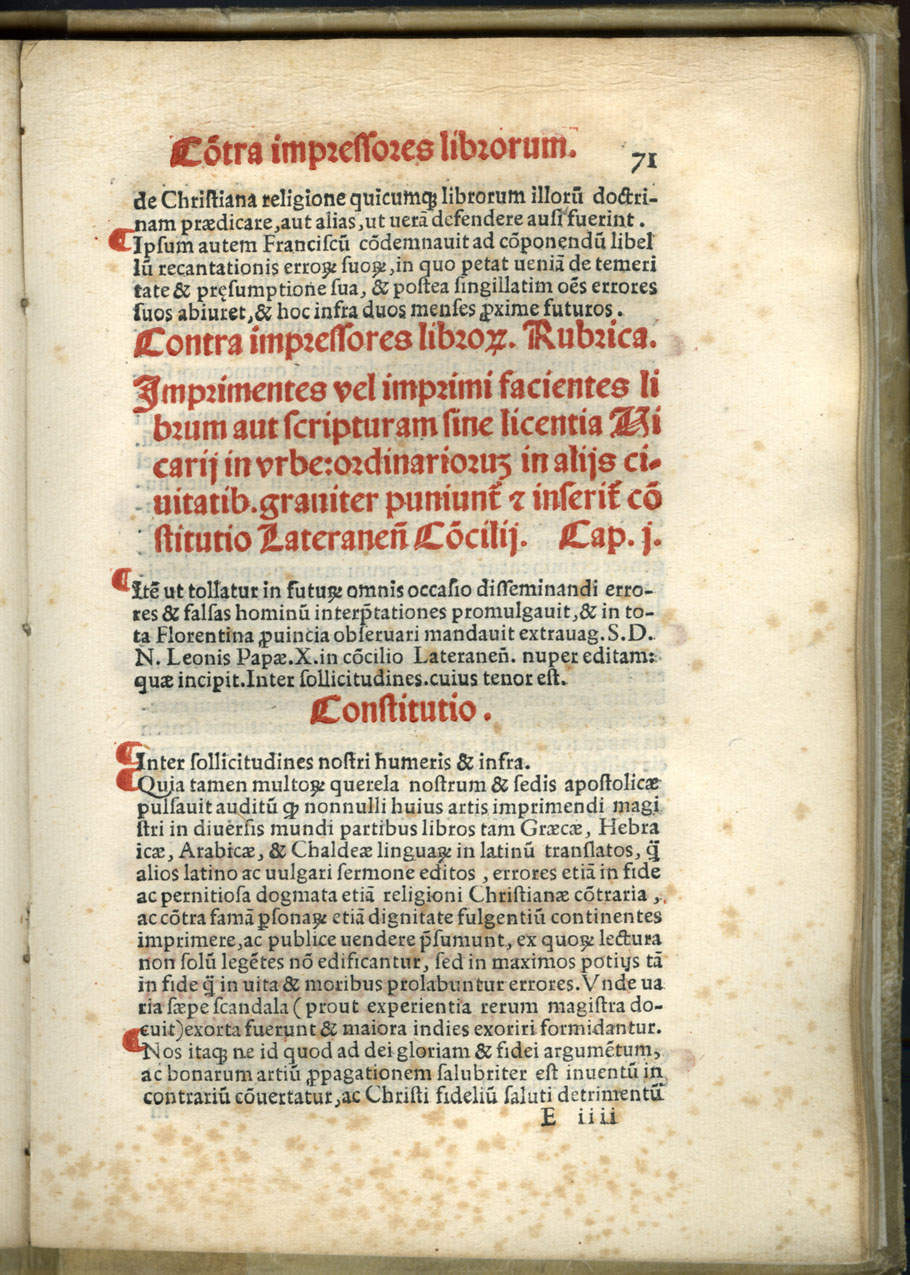 Cõtra impressores librorum.
71
de Christiana religione quicumqꝫ librorum illorũ doctri-
nam prædicare,aut alias,ut uerã defendere ausi fuerint .
¶Ipsum autem Franciscũ cõdemnauit ad cõponendũ libel
lũ recantationis erroꝝ suoꝝ,in quo petat ueniã de temeri
tate & pręsumptione sua, & postea singillatim oẽs errores
suos abiuret,& hoc infra duos menses ꝓxime futuros .
Contra impressores libroꝝ. Rubrica.
Imprimentes vel imprimi facientes li
brum aut scripturam sine licentia Vi
carij in vrbe:ordinarioruꝫ in alijs ci-
uitatib.grauiter puniunt᷑ ⁊ inserit᷑ cõ
stitutio Lateraneñ Cõcilij. Cap. j.
¶Itẽ ut tollatur in futuꝝ omnis occasio disseminandi erro-
res & falsas hominũ interp̃tationes promulgauit,& in to-
ta Florentina ꝓuincia obseruari mandauit extrauag.S.D.
N. Leonis Papæ.X.in cõcilio Lateraneñ. nuper editam:
quæ incipit.Inter sollicitudines.cuius tenor est.
Constitutio .
¶Inter sollicitudines nostri humeris & infra.
¶Quia tamen multoꝝ querela nostrum & sedis apostolicæ
pulsauit auditũ qꝫ nonnulli huius artis imprimendi magi
stri in diuersis mundi partibus libros tam Græcæ, Hebra
icæ, Arabicæ, & Chaldeæ linguaꝝ in latinũ translatos, q̃
alios latino ac uulgari sermone editos , errores etiã in fide
ac pernitiosa dogmata etiã religioni Christianæ cõtraria ,
ac cõtra famã ꝑsonaꝝ etiã dignitate fulgentiũ continentes
imprimere,ac publice uendere p̃sumunt, ex quoꝝ lectura
non solũ legẽtes nõ edificantur, sed in maximos potiꝰ tã
in fide q̃ in uita & moribus prolabuntur errores.Vnde ua
ria sæpe scandala ( prout experientia rerum magistra do-
cuit)exorta fuerunt & maiora indies exoriri formidantur.
¶Nos itaqꝫ ne id quod ad dei gloriam & fidei argumẽtum,
ac bonarum artiũ ꝓpagationem salubriter est inuentũ in
contrariũ cõuertatur,ac Christi fideliũ saluti detrimentũ
E iiii